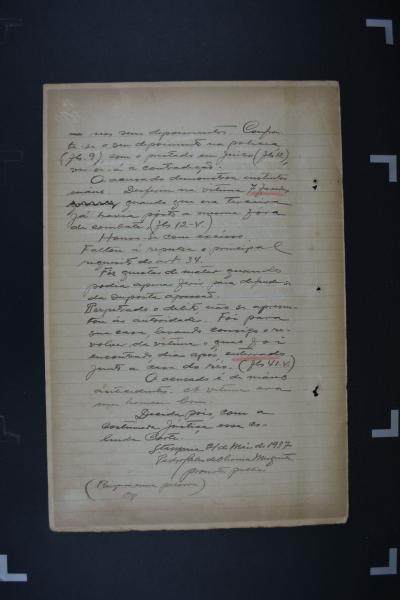 — nos seus depoimentos. Confron-
te-se o seu depoimento na policia
(fls. 9), com o prestado em juizo (fls 12),
ver-se-á a contradição.
O acusado demonstrou instintos
máus. Desferiu na vitima 7
quando que na terceira
já havia posto a mesma fóra
de combate. (fls 12-v.)
Houve com excesso.
Faltou á repulsa o principal
requisito do art 34.—
Fez questão de matar quando
podia apenas ferir para defender-se
da suposta agressão.
Perpetrado o delito não se apresen-
tou ás autoridades. Foi para
sua casa levando consigo o re-
volver da vitima o qual foi
encontrado, dias após, enterrado
junto a casa do réo. (fls 41.v.)
O acusado é de máus
antecedentes. A vitima era
um homem bom.
Decida pois, com a
costumada justiça essa co-
lenda Corte.
21 de Maio de 1937
Pedro de Oliveira Mesquita
promotor publico